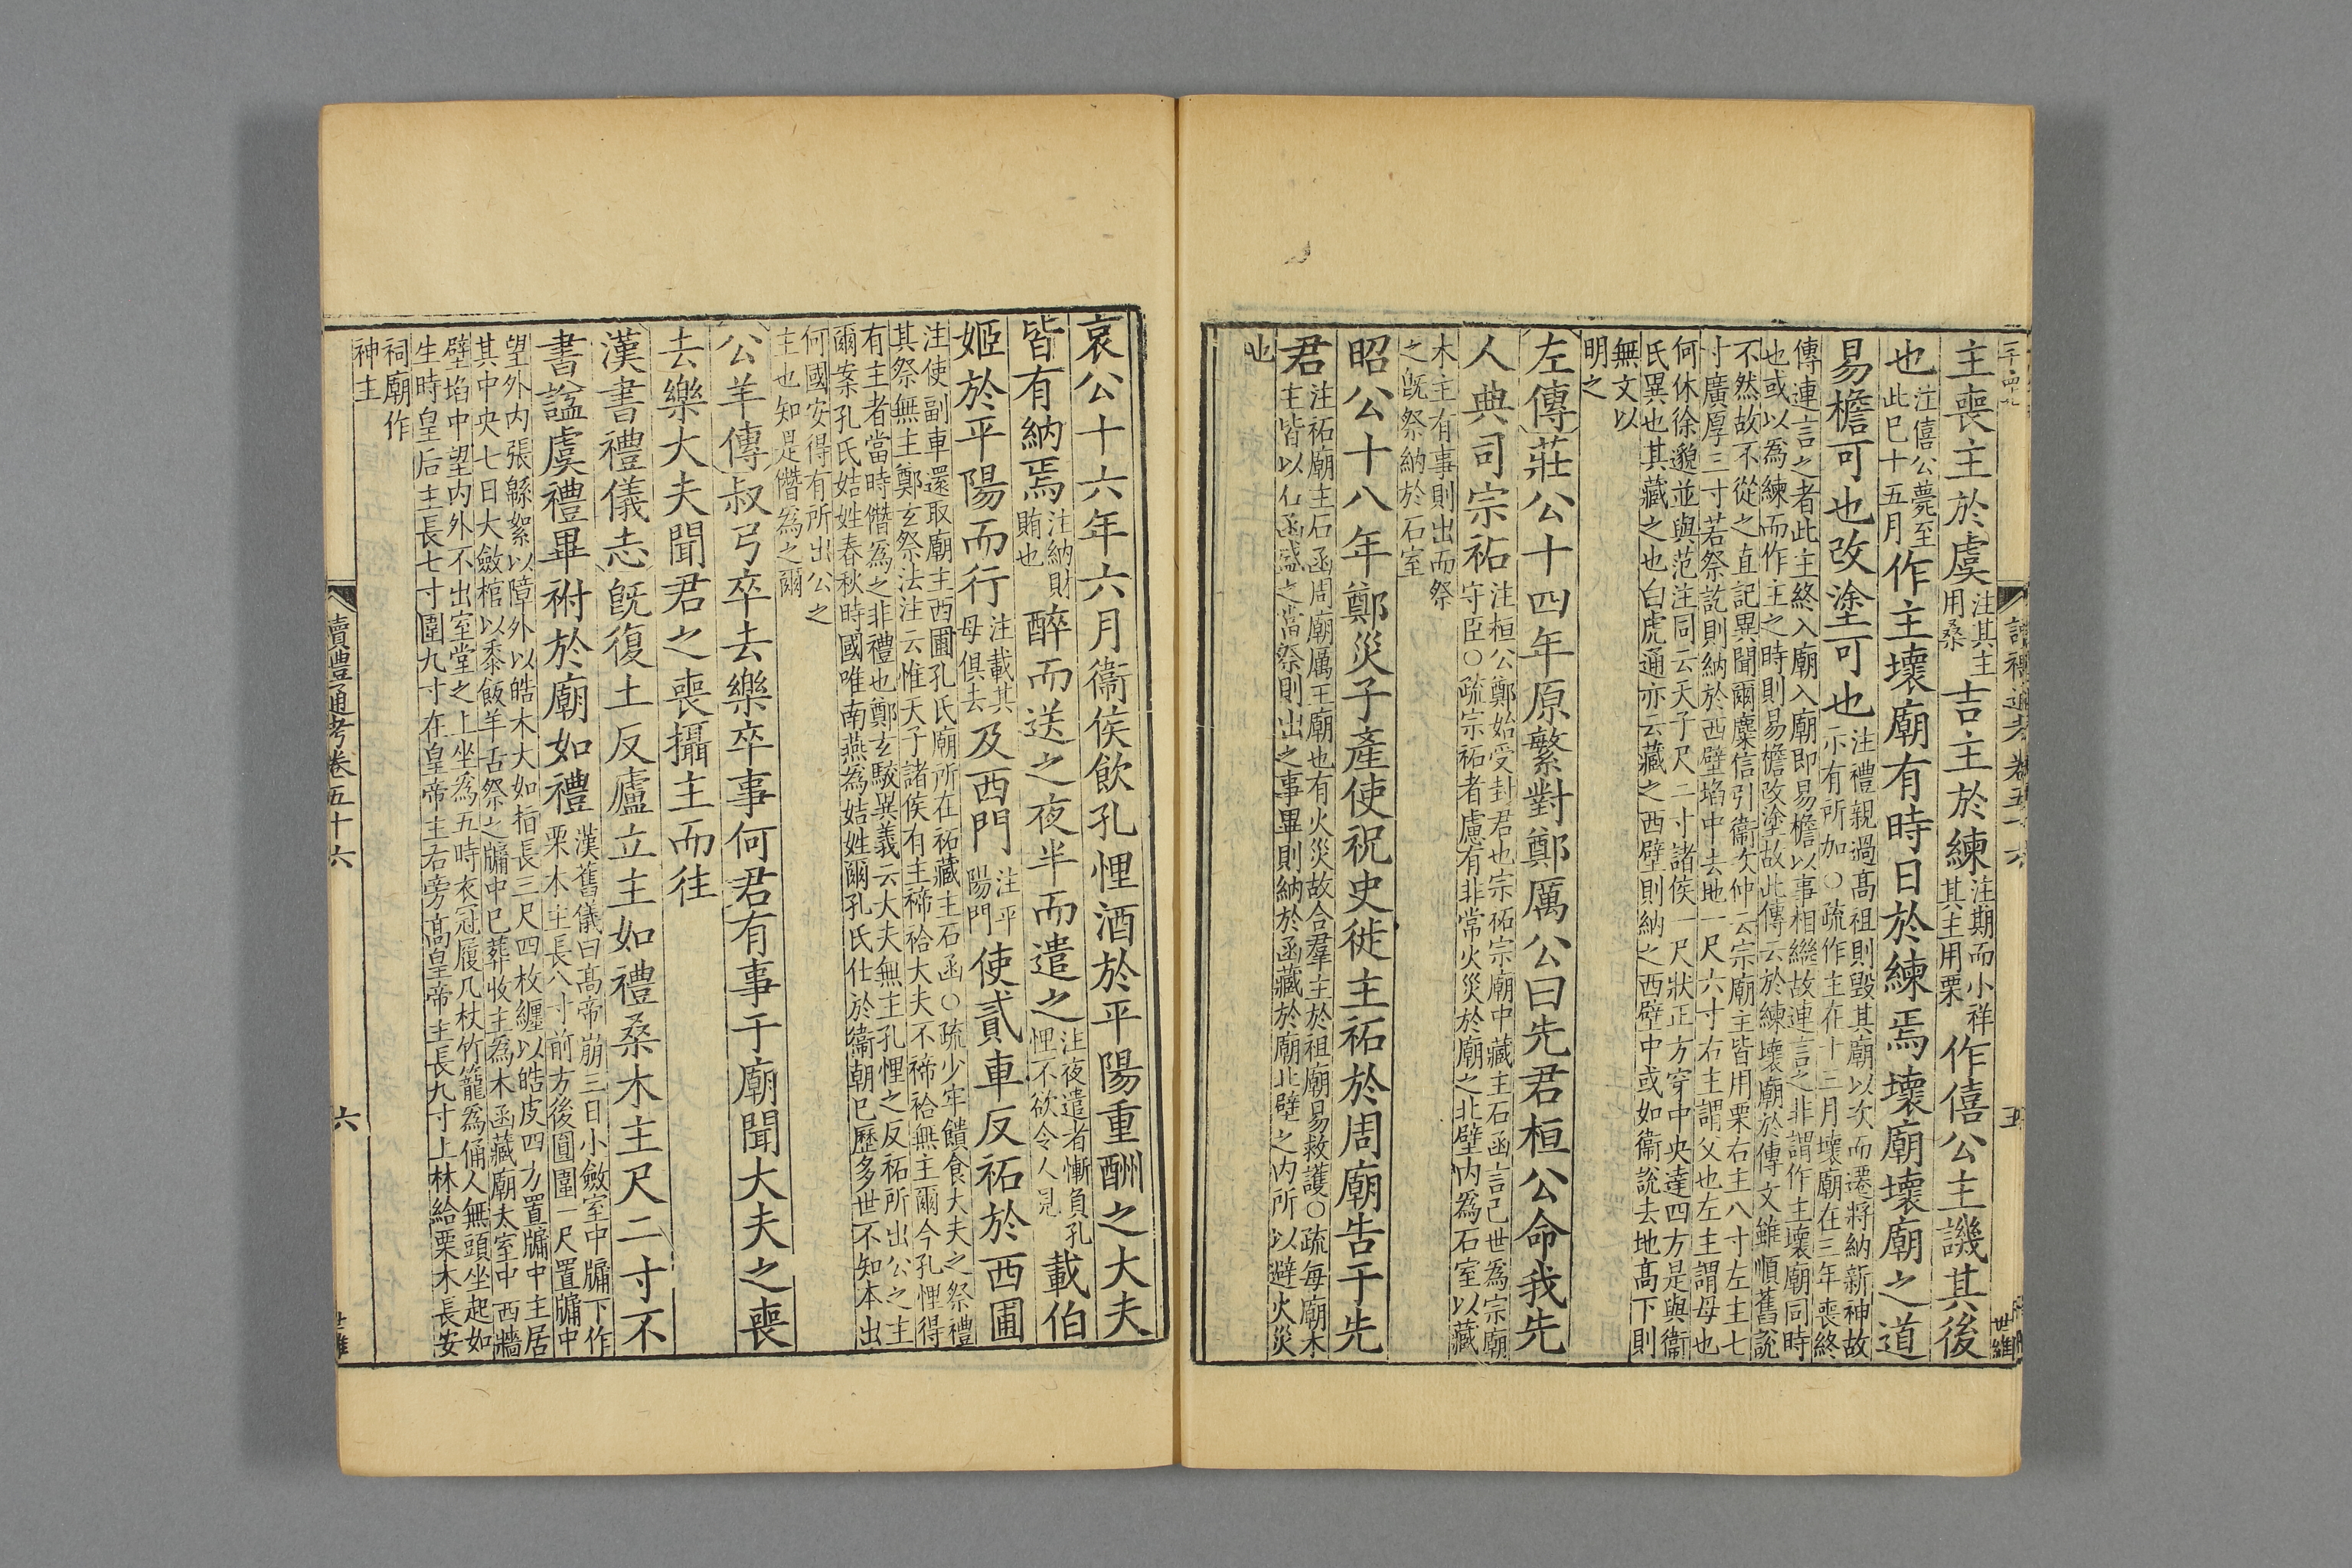 主喪主於虞注其主用桑吉主於練注期而小祥其主用栗作僖公主譏其後
也注僖公薨至此已十五月作主壞廟有時日於練焉壞廟壞廟之道
易檐可也改塗可也注禮親過高祖則毀其廟以次而遷將納新神故示有所加○疏作主在十三月壞廟在三年喪終
傳連言之者此主終入廟入廟即易檐以事相繼故連言之非謂作主壞廟同時
也或以為練而作主之時則易檐改塗故此傳云於練壞廟於傳文雖順舊說
不然故不從之直記異聞爾麋信引衞次仲云宗廟主皆用栗右主八寸左主七
寸廣厚三寸若祭訖則納於西壁埳中去地一尺六寸右主謂父也左主謂母也
何休徐邈並與范注同云天子尺二寸諸侯一尺狀正方穿中央達四方是與衞
氏異也其藏之也白虎通亦云藏之西壁則納之西壁中或如衞說去地高下則
無文以
明之
左傳莊公十四年原繁對鄭厲公曰先君桓公命我先
人典司宗祏注桓公鄭始受封君也宗祏宗廟中藏主石函言己世為宗廟守臣○疏宗祏者慮有非常火災於廟之北壁内為石室以藏
木主有事則出而祭
之旣祭納於石室
昭公十八年鄭災子產使祝史徙主祏於周廟告于先
君注祏廟主石函周廟厲王廟也有火災故合羣主於祖廟易救護○疏每廟木主皆以石函盛之當祭則出之事畢則納於函藏於廟北壁之内所以避火災
也
讀禮通考卷五十六
五
世維
哀公十六年六月衞侯飲孔悝酒於平陽重酬之大夫
皆有納焉注納財賄也醉而送之夜半而遣之注夜遣者慚負孔悝不欲令人見載伯
姬於平陽而行注載其母俱去及西門注平陽門使貳車反祏於西圃
注使副車還取廟主西圃孔氏廟所在祏藏主石函○疏少牢饋食大夫之祭禮
其祭無主鄭玄祭法注云惟天子諸侯有主禘祫大夫不禘祫無主爾今孔悝得
有主者當時僭為之非禮也鄭玄駮異義云大夫無主孔悝之反祏所出公之主
爾案孔氏姞姓春秋時國唯南燕為姞姓爾孔氏仕於衞朝已歷多世不知本出
何國安得有所出公之
主也知是僭為之爾
公羊傳叔弓卒去樂卒事何君有事于廟聞大夫之喪
去樂大夫聞君之喪攝主而往
漢書禮儀志旣復土反廬立主如禮桑木主尺二寸不
書諡虞禮畢祔於廟如禮漢舊儀曰高帝崩三日小斂室中牖下作栗木主長八寸前方後圓圍一尺置牖中
望外内張緜絮以障外以皓木大如指長三尺四枚纏以皓皮四方置牖中主居
其中央七日大斂棺以黍飯羊舌祭之牖中已葬收主為木函藏廟太室中西牆
壁埳中望内外不出室堂之上坐為五時衣冠履几杖竹籠為俑人無頭坐起如
生時皇后主長七寸圍九寸在皇帝主右旁高皇帝主長九寸上林給栗木長安
祠廟作
神主
讀豊通考卷五十六
六
世維